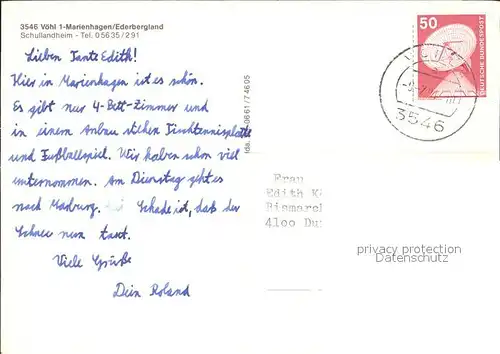 3546 Vöhl 1-Marienhagen/Ederbergland
Schullandheim - Tel. 05635/291
Lieben Tante Edith!
Hier in Marienhagen ist es schön.
Es gibt nur 4-Bett-Zimmer und
in einem Anbau stehen Tischtennisplatte
und Fußballspiel. Wir haben schon viel
unternommen. Am Dienstag geht es
nach Marburg. Schade ist, daß der
Schnee nun taut.
Viele Grüße
Dein Roland
0661/74605
50
DEUTSCHE BUNDESPOST
3546
Frau
Edith K
Bismarc
4100 Du
privacy protection
Datenschutz